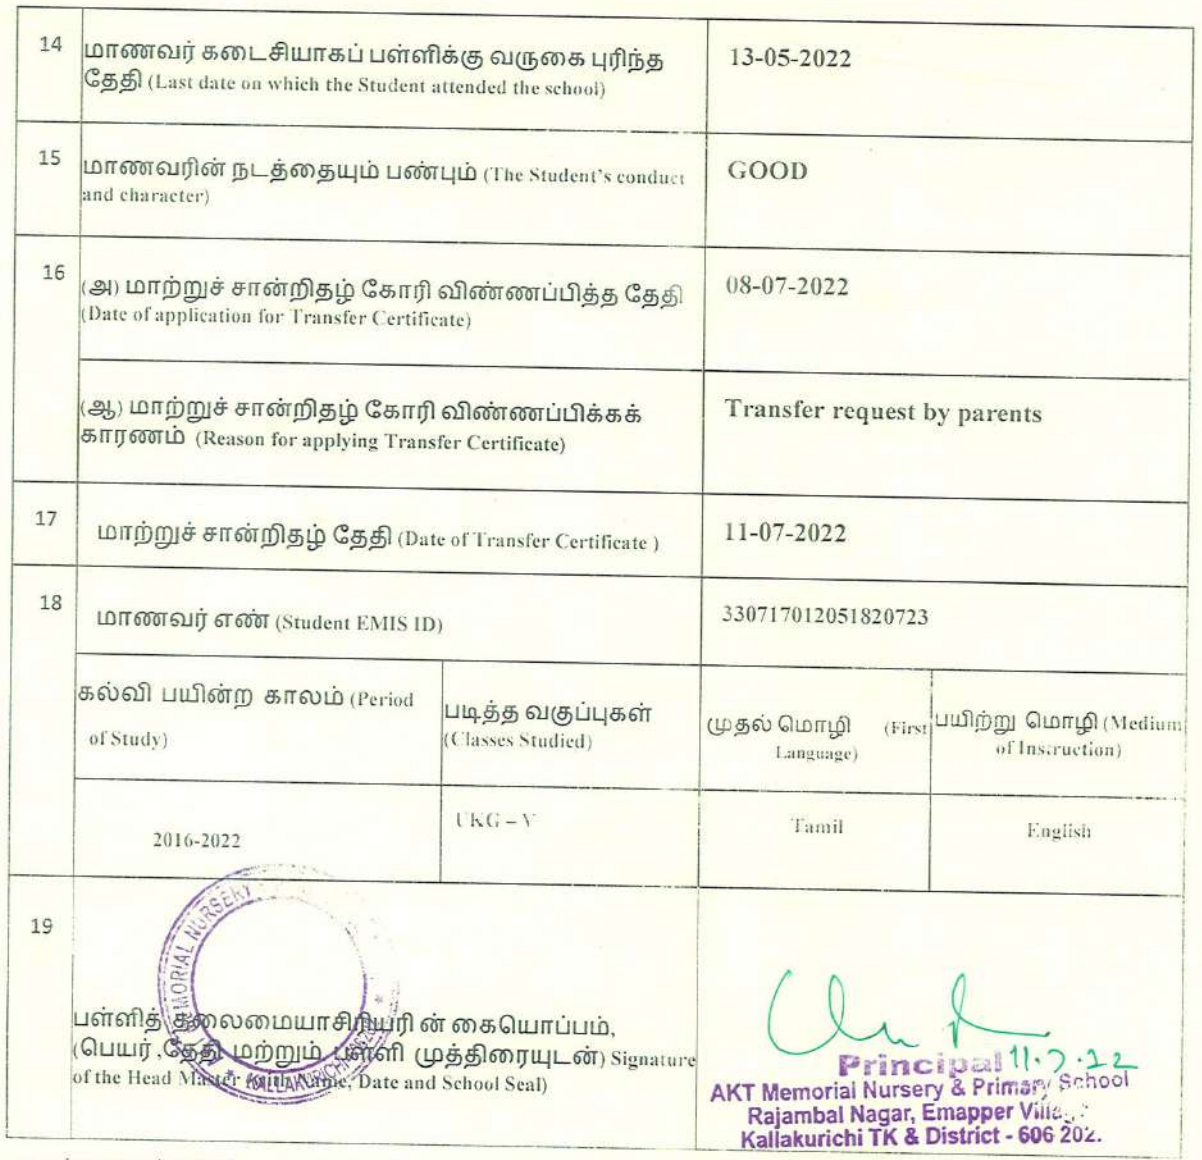 14
மாணவர் கடைசியாகப் பள்ளிக்கு வருகை புரிந்த
தேதி (Last date on which the Student attended the school)
13-05-2022
15
மாணவரின் நடத்தையும் பண்பும் (The Student's conduct
and character)
GOOD
16
(அ) மாற்றுச் சான்றிதழ் கோரி விண்ணப்பித்த தேதி
(Date of application for Transfer Certificate)
08-07-2022
(ஆ) மாற்றுச் சான்றிதழ் கோரி விண்ணப்பிக்கக்
காரணம் (Reason for applying Transfer Certificate)
Transfer request by parents
17
மாற்றுச் சான்றிதழ் தேதி (Date of Transfer Certificate )
11-07-2022
18
மாணவர் எண் (Student EMIS ID)
330717012051820723
கல்வி பயின்ற காலம் (Period
of Study)
படித்த வகுப்புகள்
(Classes Studied)
முதல் மொழி (First
Language)
பயிற்று மொழி (Medium
of Instruction)
2016-2022
UKG – V
Tamil
English
19
MEMORIAL NURSERY
KALLAKURICHI
பள்ளித் தலைமையாசிரியரி ன் கையொப்பம்,
(பெயர் ,தேதி மற்றும் பள்ளி முத்திரையுடன்) Signature
of the Head Master (with Name, Date and School Seal)
Principal 11.7.22
AKT Memorial Nursery & Primary School
Rajambal Nagar, Emapper Village
Kallakurichi TK & District - 606 202.